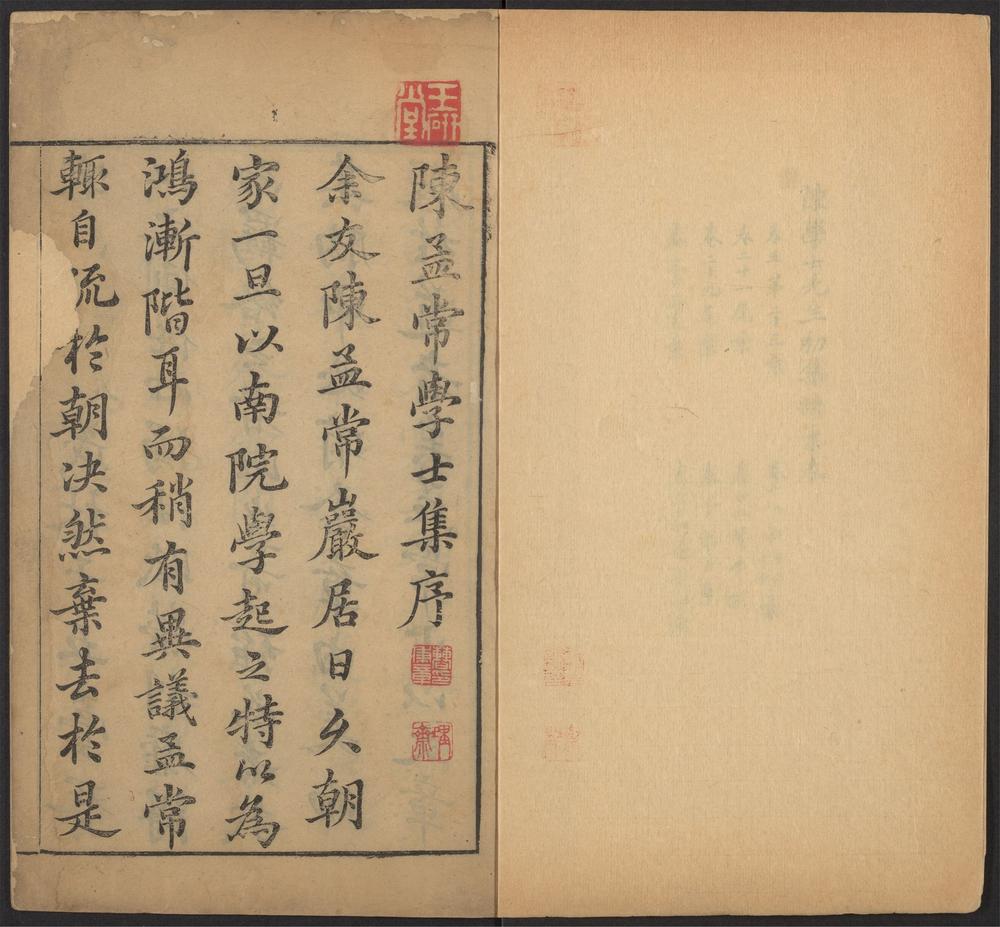 陳孟常學士集序
余友陳孟常巖居日久朝
家一旦以南院學起之特以為
鴻漸階耳而稍有異議孟常
輙自流於朝决然棄去於是